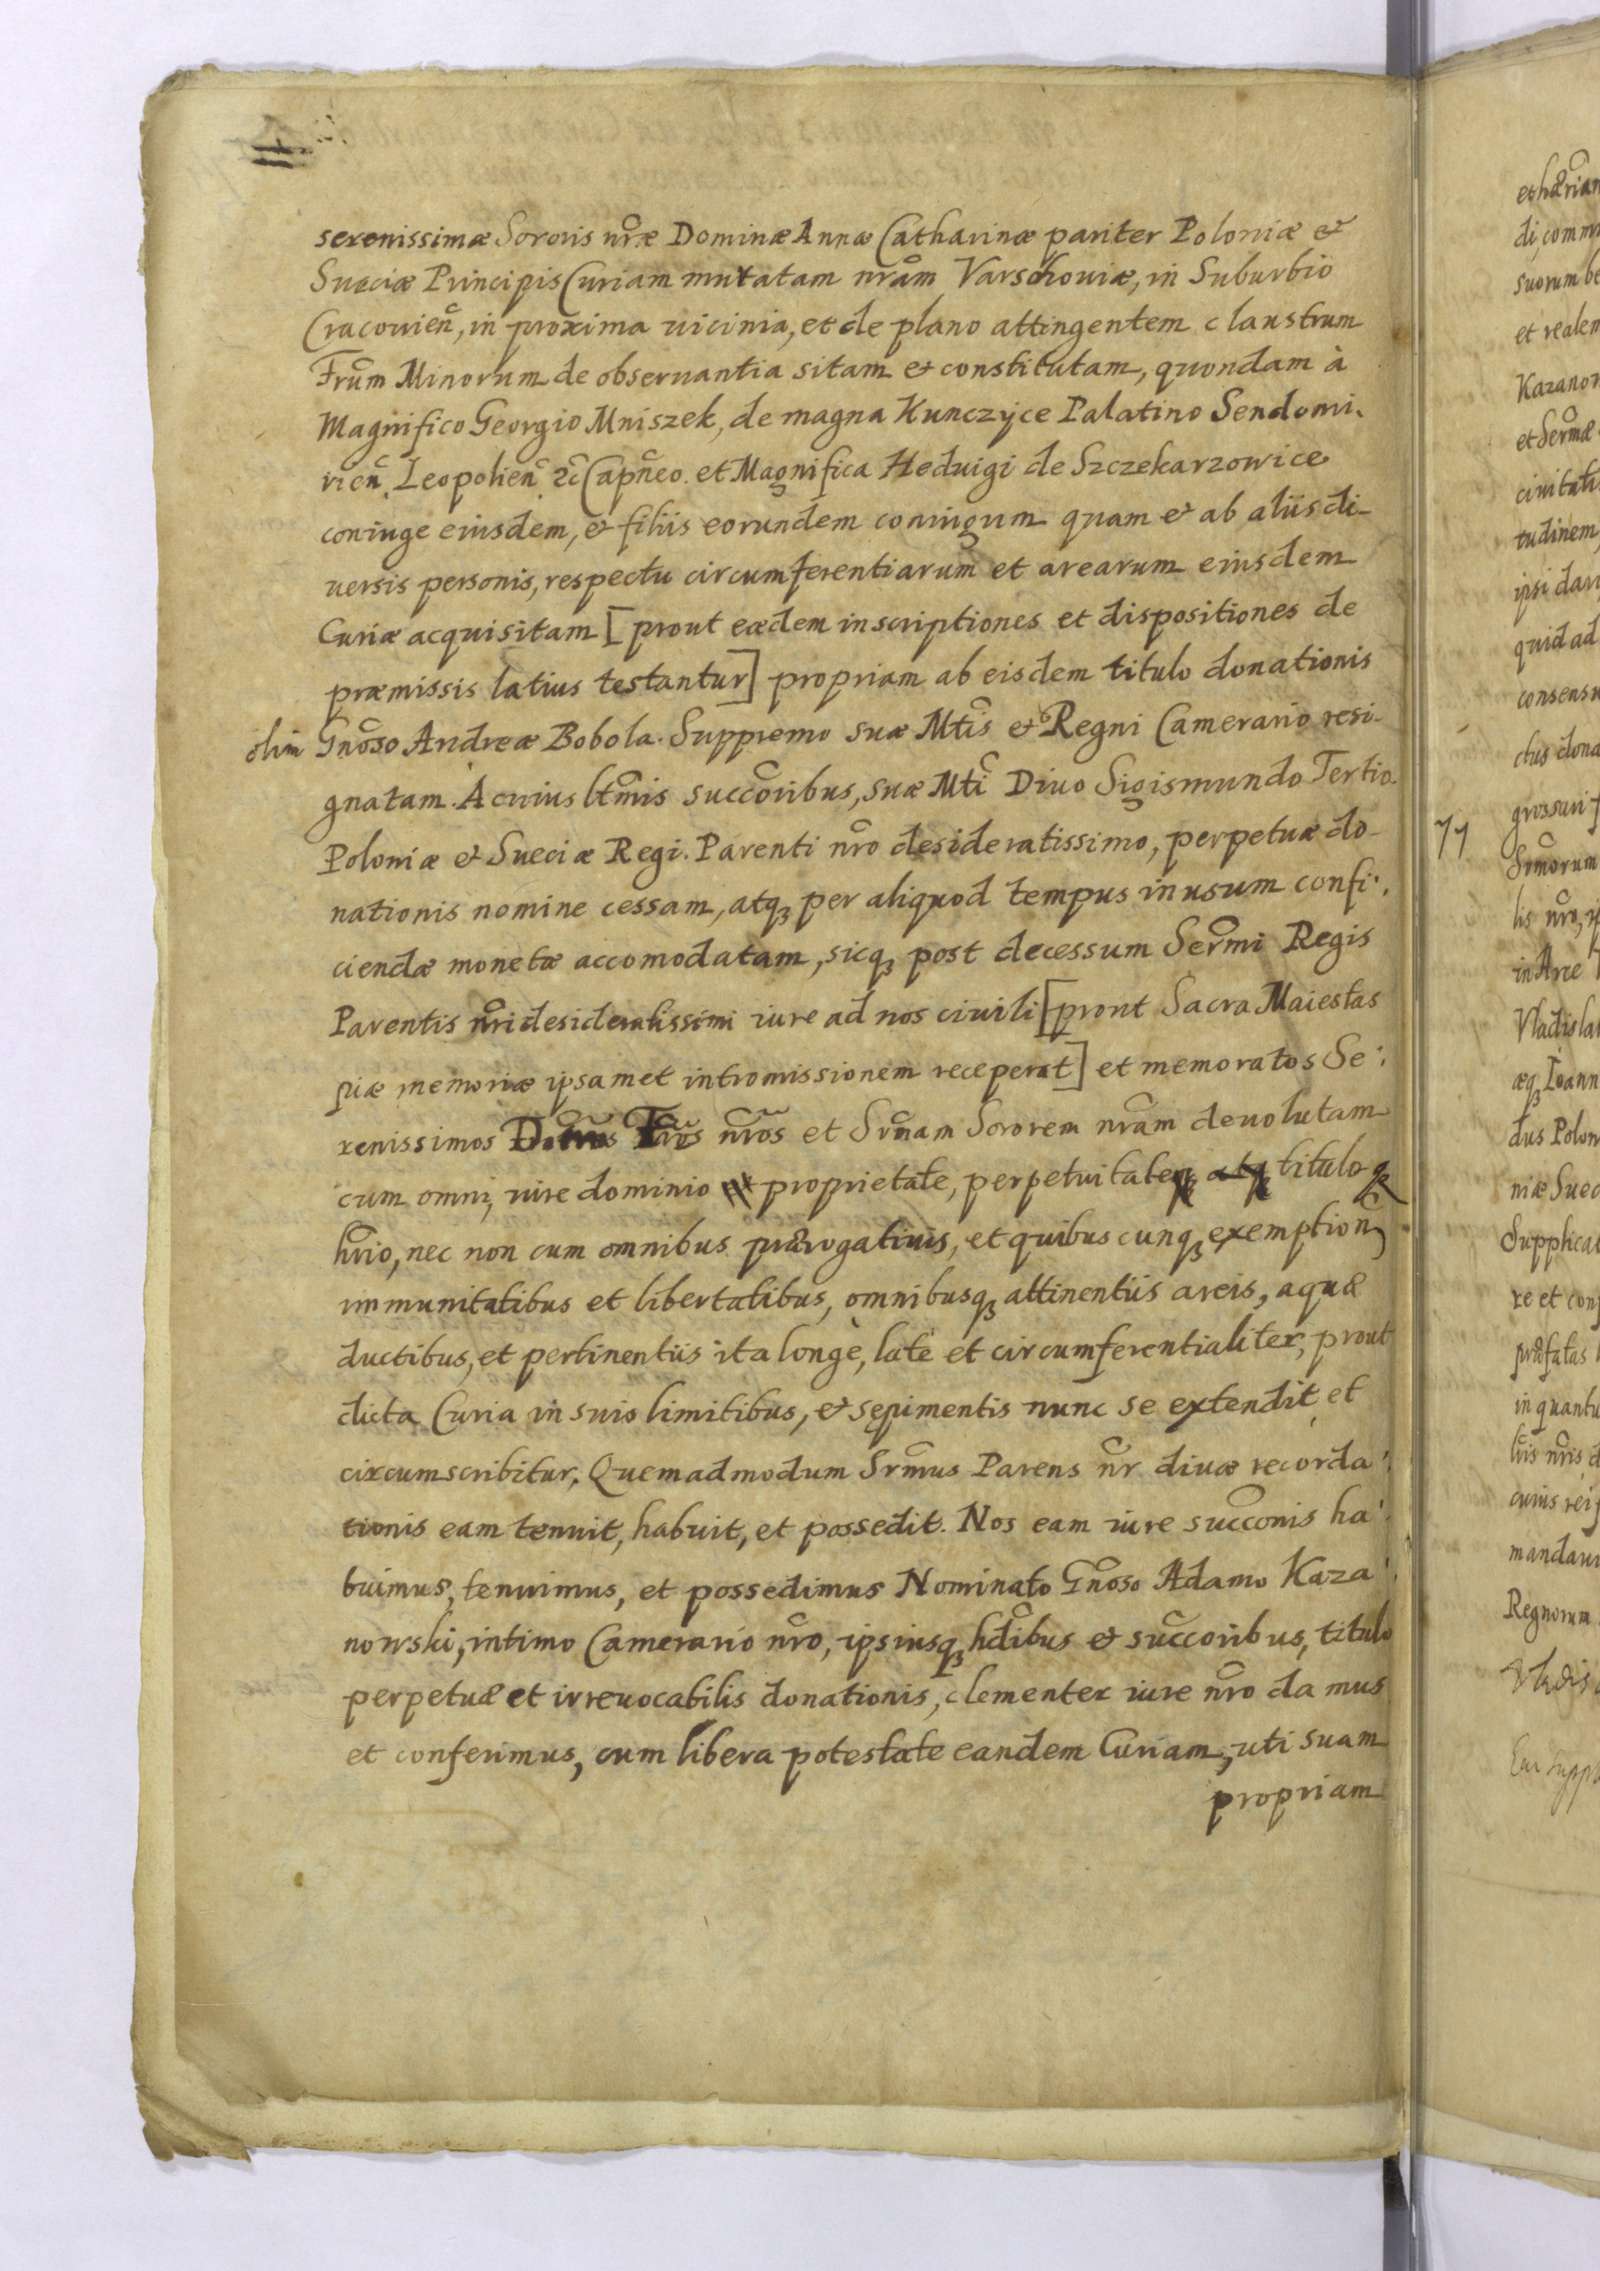 serenissimæ Sororis nr̃æ Dominæ Annæ Catharinæ pariter Poloniæ &
Sueciæ Principis Curiam mutatam nrãm Varschouiæ, in Suburbio
Cracouieñ, in proxima uicinia, et de plano attingentem claustrum
Frũm Minorum de obseruantia sitam & constitutam, quondam à
Magnifico Georgio Mniszek, de magna Kunczÿce Palatino Sendomi,
rieñ, Leopolieñ &c̃ Capñeo. et Magnifica Heduigi de Szczekarzowice
coniuge eiusdem, & filiis eorundem coniugum quam & ab aliis di-
uersis personis, respectu circumferentiarum et arearum eiusdem
Curiæ acquisitam [prout eædem inscriptiones et dispositiones de
præmissis latius testantur] propriam ab eisdem titulo donationis
olim Gnõso Andreæ Bobola. Supremo suæ Mtis̃ & Regni Camerario resi-
gnatam. A cuius ltm̃is succõribus, suæ Mtĩ Diuo Sigismundo Tertio
Poloniæ & Sueciæ Regi. Parenti nrõ desideratissimo, perpetuæ do-
nationis nomine cessam, atqȝ per aliquod tempus in usum confi:
ciendæ monetæ accomodatam, sicqȝ post decessum Serm̃i Regis
Parentis nrĩ desideratissimi iure ad nos ciuili [prout Sacra Maiestas
piæ memoriæ ipsamet intromissionem receperat] et memoratos Se:
renissimos Frẽs nrõs et Srm̃am Sororem nrãm deuolutam
cum omni, iure dominio proprietate, perpetuitate tituloqȝ
hrĩo, nec non cum omnibus prærogatiuis, et quibuscunqȝ exemption
immunitatibus et libertatibus, omnibusqȝ attinentiis areis, aquæ
ductibus, et pertinentiis ita longè, latè et circumferentialiter, prout
dicta Curia in suis limitibus, & sepimentis nunc se extendit et
circumscribitur. Quemadmodum Srm̃us Parens nr̃ diuæ recorda:
tionis eam tenuit, habuit, et possedit. Nos eam iure succõnis ha:
buimus, tenuimus, et possedimus Nominato Gnõso Adamo Kaza:
nowski, intimo Camerario nrõ, ipsiusqȝ hdĩbus & succõribus, titulo
perpetuæ et irreuocabilis donationis, clementer iure nrõ damus
et conferimus, cum libera potestate eandem Curiam, uti suam
propriam
et hæ
di, comm
suorum be
et realem
Kazanow
et Serm̃æ
ciuitati
tudinem,
ipsi dari
quid ad
consensu
ctus dona
77
grossuri
Srm̃orum
lis nrõ,
in Arce
Vladisla
æqȝ Ioann
dus Polon
niæ Suec
Supplica
re et con
præfatas
in quantu
nrĩs
cuius rei
mandaui
Regnorum
Vladis